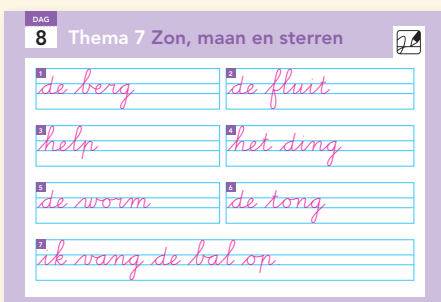 DAG
8 Thema 7 Zon, maan en sterren
1 de berg
2 de fluit
3 help
4 het ding
5 de worm
6 de tong
7 ik vang de bal op